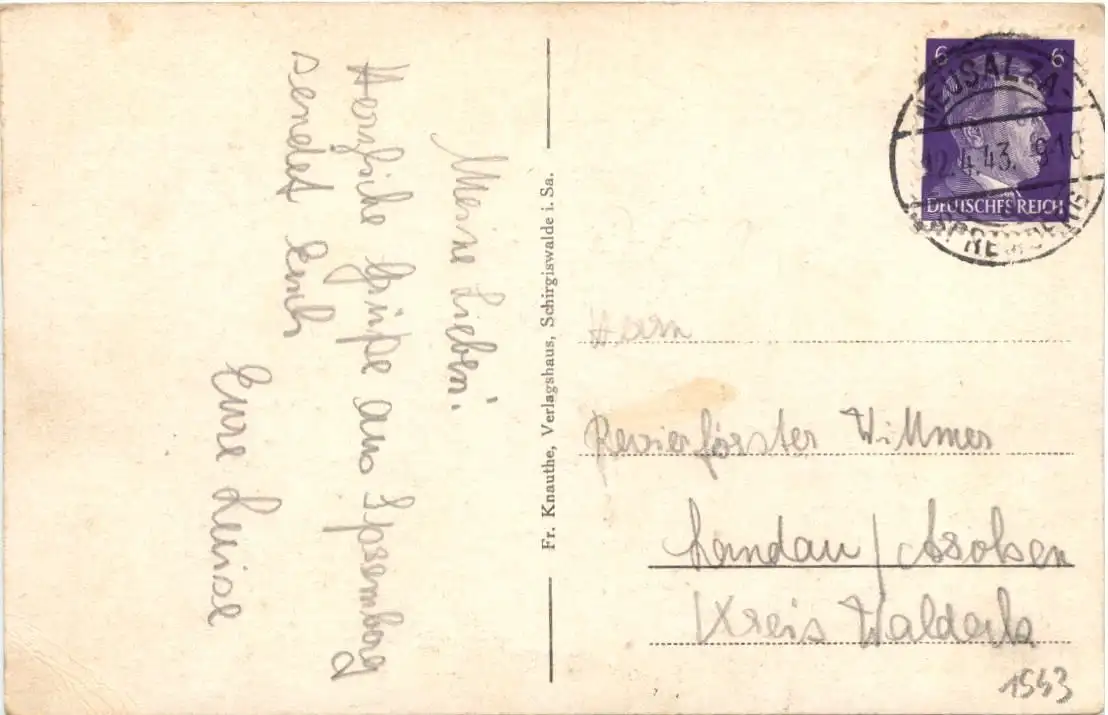 Meine Lieben!
Herzliche Grüße aus Spremberg
sendet Euch
Eure Luise
Fr. Knauthe, Verlagshaus, Schirgiswalde i. Sa.
6 6
DEUTSCHES REICH
NEUSALZA-
12.4.43. 9-10
SPREMBERG
Herrn
Revierförster Willmer
Landau / Arolsen
Kreis Waldeck
1943